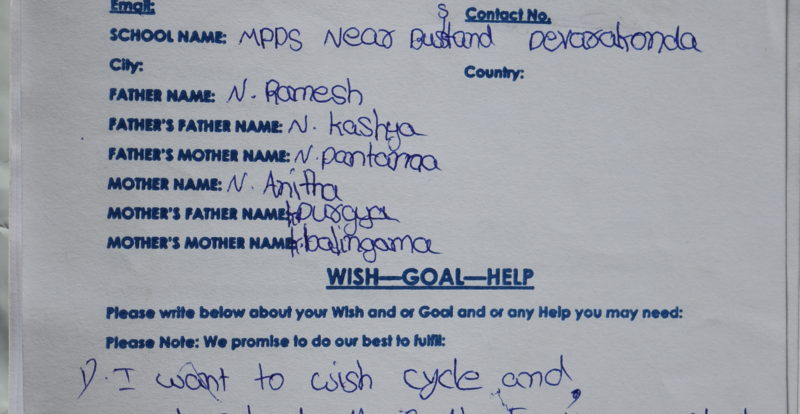 Email: Contact No.
SCHOOL NAME: MPPS Near Busstand Devarakonda
City: Country:
FATHER NAME: N. Ramesh
FATHER'S FATHER NAME: N. kashya
FATHER'S MOTHER NAME: N.
MOTHER NAME: N. Anitha
MOTHER'S FATHER NAME:
MOTHER'S MOTHER NAME:
WISH—GOAL—HELP
Please write below about your Wish and or Goal and or any Help you may need:
Please Note: We promise to do our best to fulfil:
1). I want to wish cycle and,